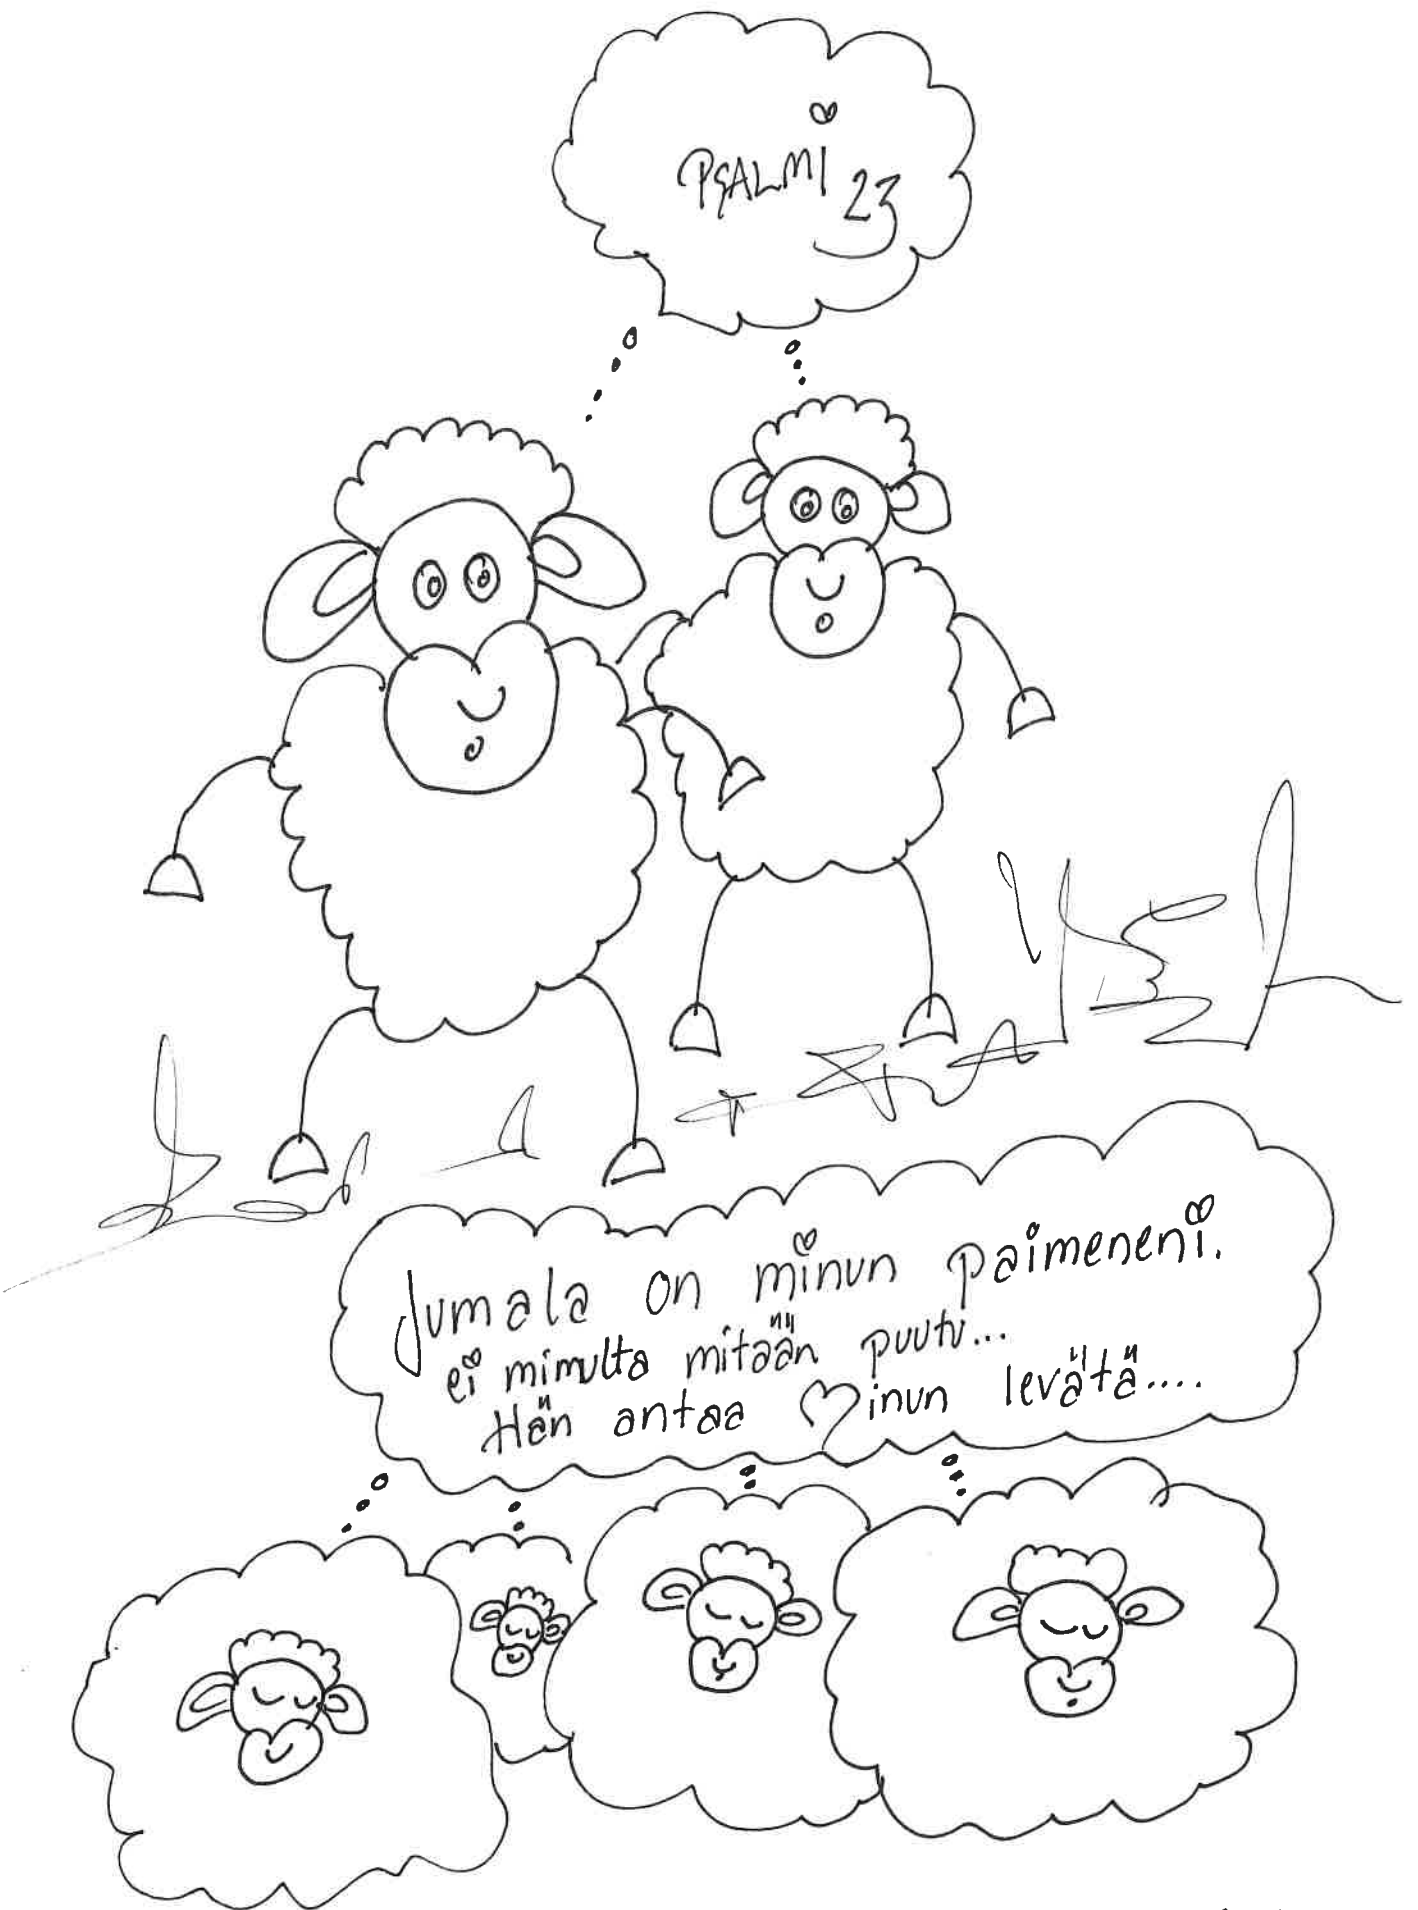 PSALMI 23
Jumala on minun paimeneni.
ei minulta mitään puutu...
Hän antaa minun levätä....